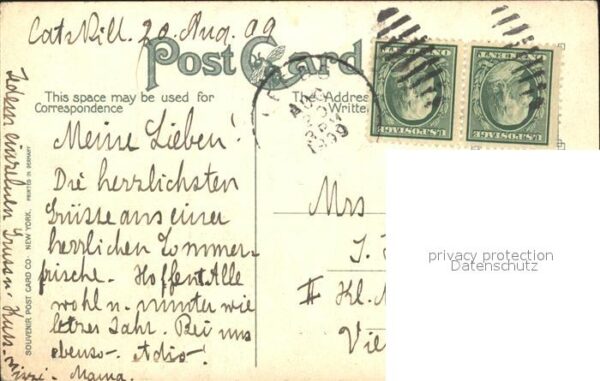 Catskill. 20. Aug. 09
Post Card
This space may be used for
Correspondence
The Address
Written
Meine Lieben!
Die herzlichsten
Grüsse aus einer
herrlichen Sommer-
frische. Hoffentl. Alle
wohl u. munter wie
letzes Jahr. Bei uns
ebenso. Adio!
Mizzi. Mama.
Jedem einzelnen Gruss u. Kuss.
SOUVENIR POST CARD CO. NEW YORK. PRINTED IN GERMANY
AUG
20
1909
U.S. POSTAGE
ONE CENT
U.S. POSTAGE
ONE CENT
Mrs
II Kl.
Vie
privacy protection
Datenschutz